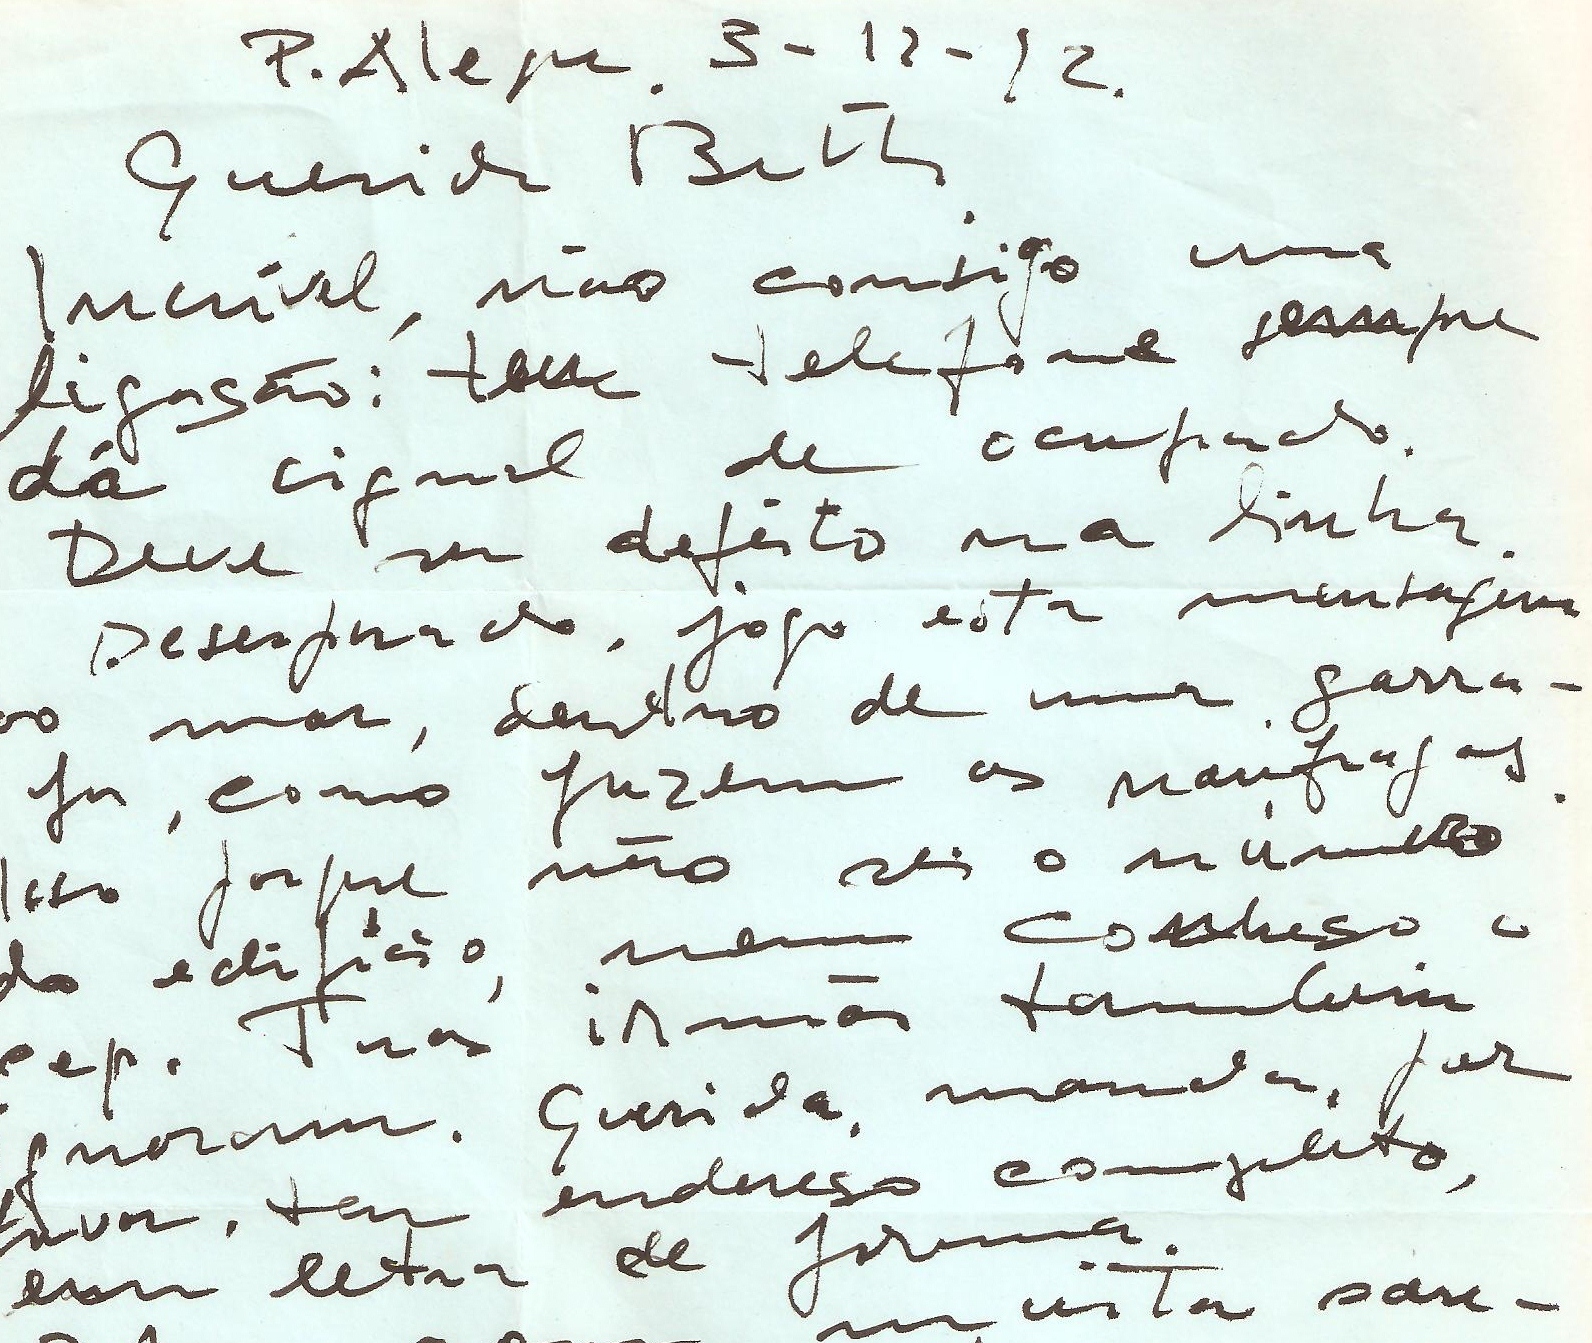 P. Alegre. 3-12-92.
Querida Beth,
Incrível, não consigo uma
ligasão: teu telefone sempre
dá cignal de ocupado.
Deve ser defeito na linha.
Desesperado, jogo esta mensagem
ao mar, dentro de uma garra-
fa, como fazem os naúfragos.
Isso porque não sei o número
do edifício, nem conheso o
cep. Tuas irmãs também
ignoram. Querida, manda, por
favor, teu endereso completo,
em letra de forma.
muita sau-